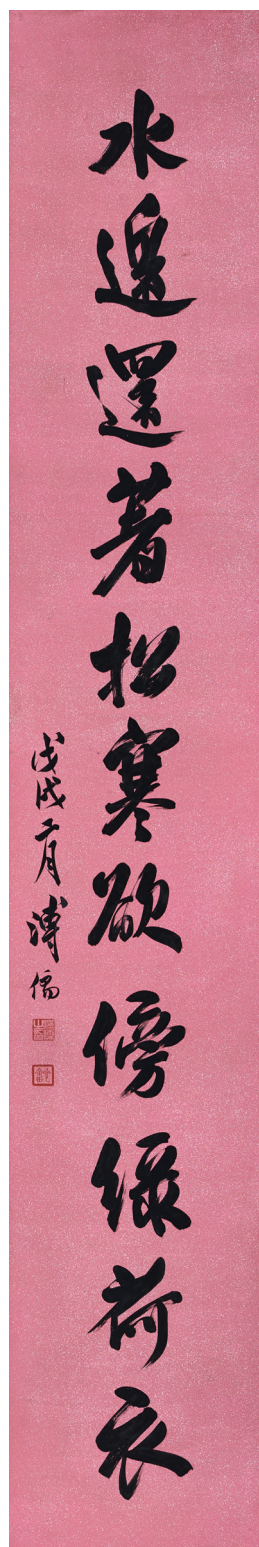 水邊還著松寒欲傍綠荷衣
戊戌二月溥儒